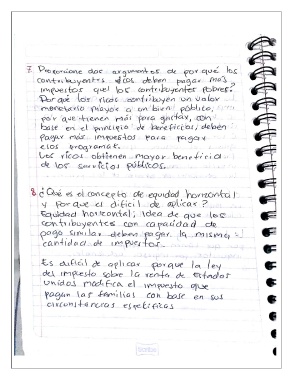 7. Proporcione dos argumentos de por qué los
contribuyentes ricos deben pagar más
impuestos que los contribuyentes pobres?
Por qué los ricos contribuyen un valor
monetario mayor a un bien público,
por que tienen más para gastar, con
base en el principio de beneficios, deben
pagar más impuestos para pagar
esos programas.
Los ricos obtienen mayor beneficio
de los servicios públicos.
8. ¿Qué es el concepto de equidad horizontal
y por qué es difícil de aplicar?
Equidad horizontal; idea de que los
contribuyentes con capacidad de
pago similar deben pagar la misma
cantidad de impuestos.
Es difícil de aplicar porque la ley
del impuesto sobre la renta de estados
unidos modifica el impuesto que
pagan las familias con base en sus
circunstancias específicas